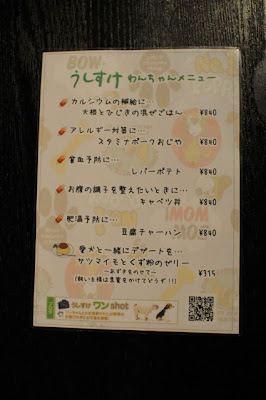 BOW-
うしすけ わんちゃんメニュー
カルシウムの補給に…
大根とひじきの混ぜごはん ¥840
アレルギー対策に…
スタミナポークおじや ¥840
貧血予防に…
レバーポテト ¥840
お腹の調子を整えたいときに…
キャベツ丼 ¥840
肥満予防に…
豆腐チャーハン ¥840
愛犬と一緒にデザートを…
サツマイモとくず粉のゼリー
～あずきをのせて～ ¥315
(飼い主様は黒蜜をかけてどうぞ！！)
うしすけ ワン shot